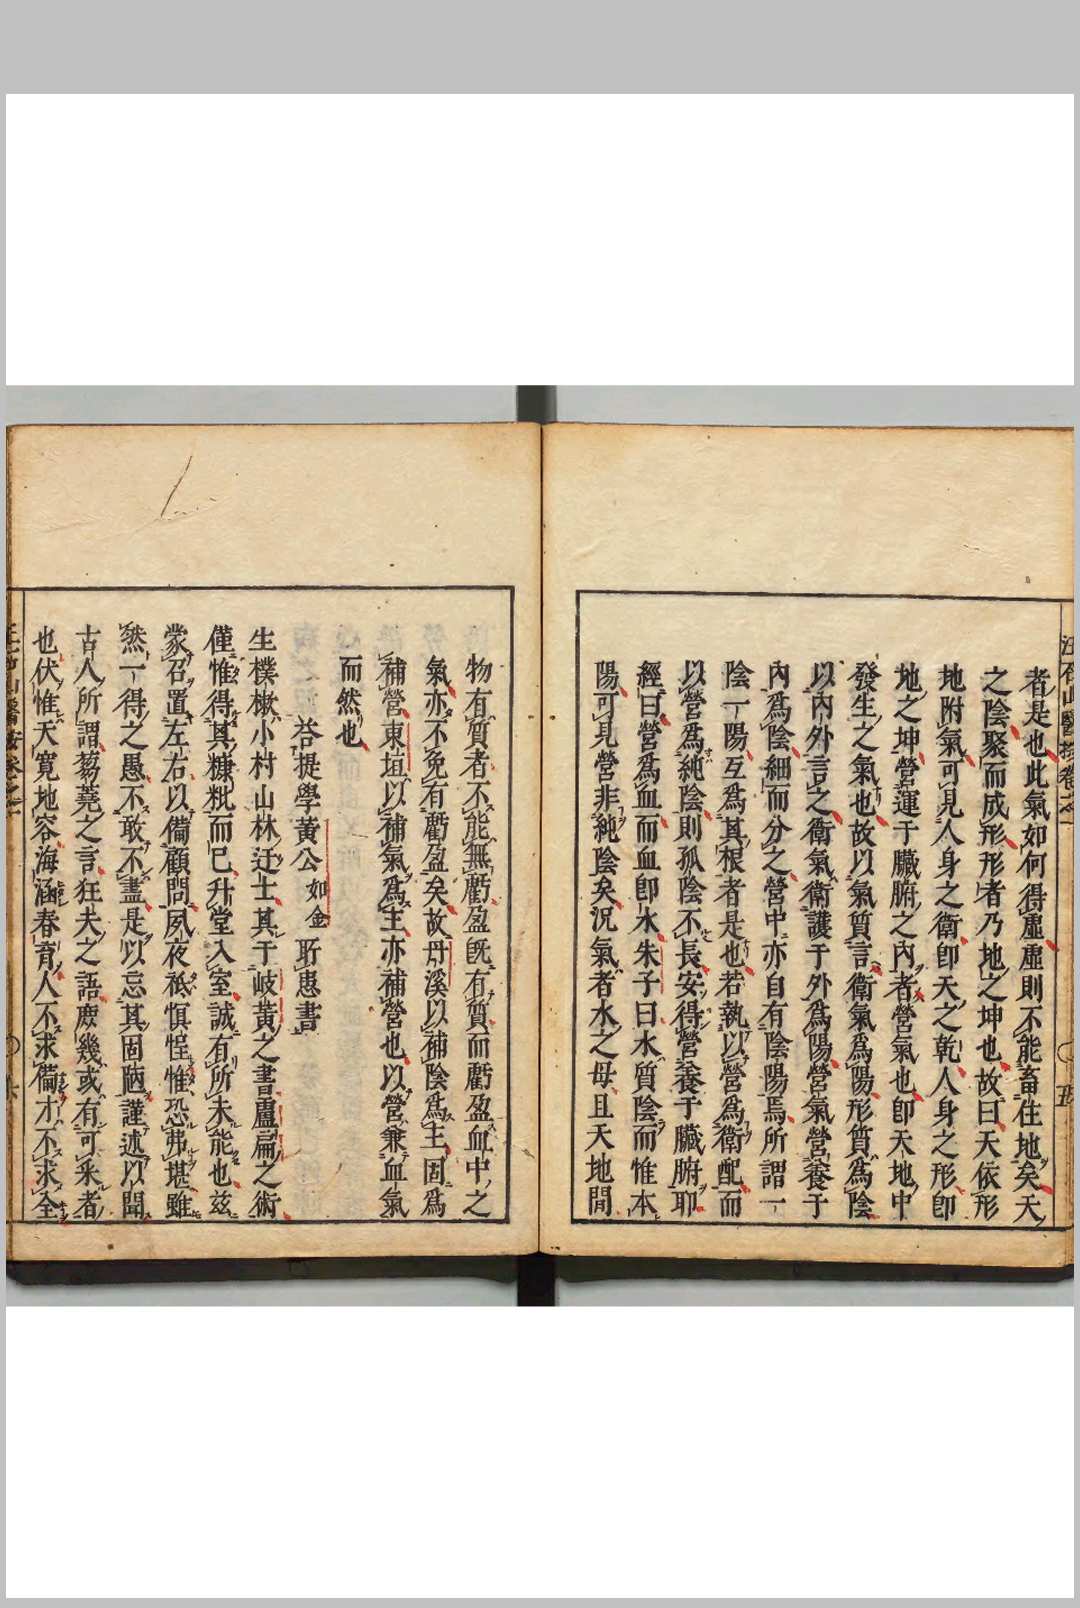 者是也此氣如何得虛虛則不能畜住地矣天
之陰聚而成形形者乃地之坤也故曰天依形
地附氣可見人身之衛即天之乾人身之形即
地之坤營運于臟腑之內者營氣也即天地中
發生之氣也故以氣質言衛氣爲陽形質爲陰
以內外言之衛氣衛護于外爲陽營氣營養于
內爲陰細而分之營中亦自有陰陽焉所謂一
陰一陽互爲其根者是也若執以營爲衛配而
以營爲純陰則孤陰不長安得營養于臟腑耶
經曰營爲血而血即水朱子曰水質陰而惟本
陽可見營非純陰矣況氣者水之母且天地間
物有質者不能無虧盈既有質而虧盈血中之
氣亦不免有虧盈矣故丹溪以補陰爲主固爲
補營東垣以補氣爲主亦補營也以營兼血氣
而然也
荅提學黃公如金耵惠書
生樸樕小村山林迂士其于岐黃之書盧扁之術
僅惟得其糠粃而已升堂入室誠有所未能也茲
蒙召置左右以備顧問夙夜祗慎惶惟恐弗堪雖
然一得之愚不敢不盡是以忘其固陋謹述以聞
古人所謂蒭蕘之言狂夫之語庶幾或有可采者
也伏惟天寬地容海涵春育人不求備才不求全